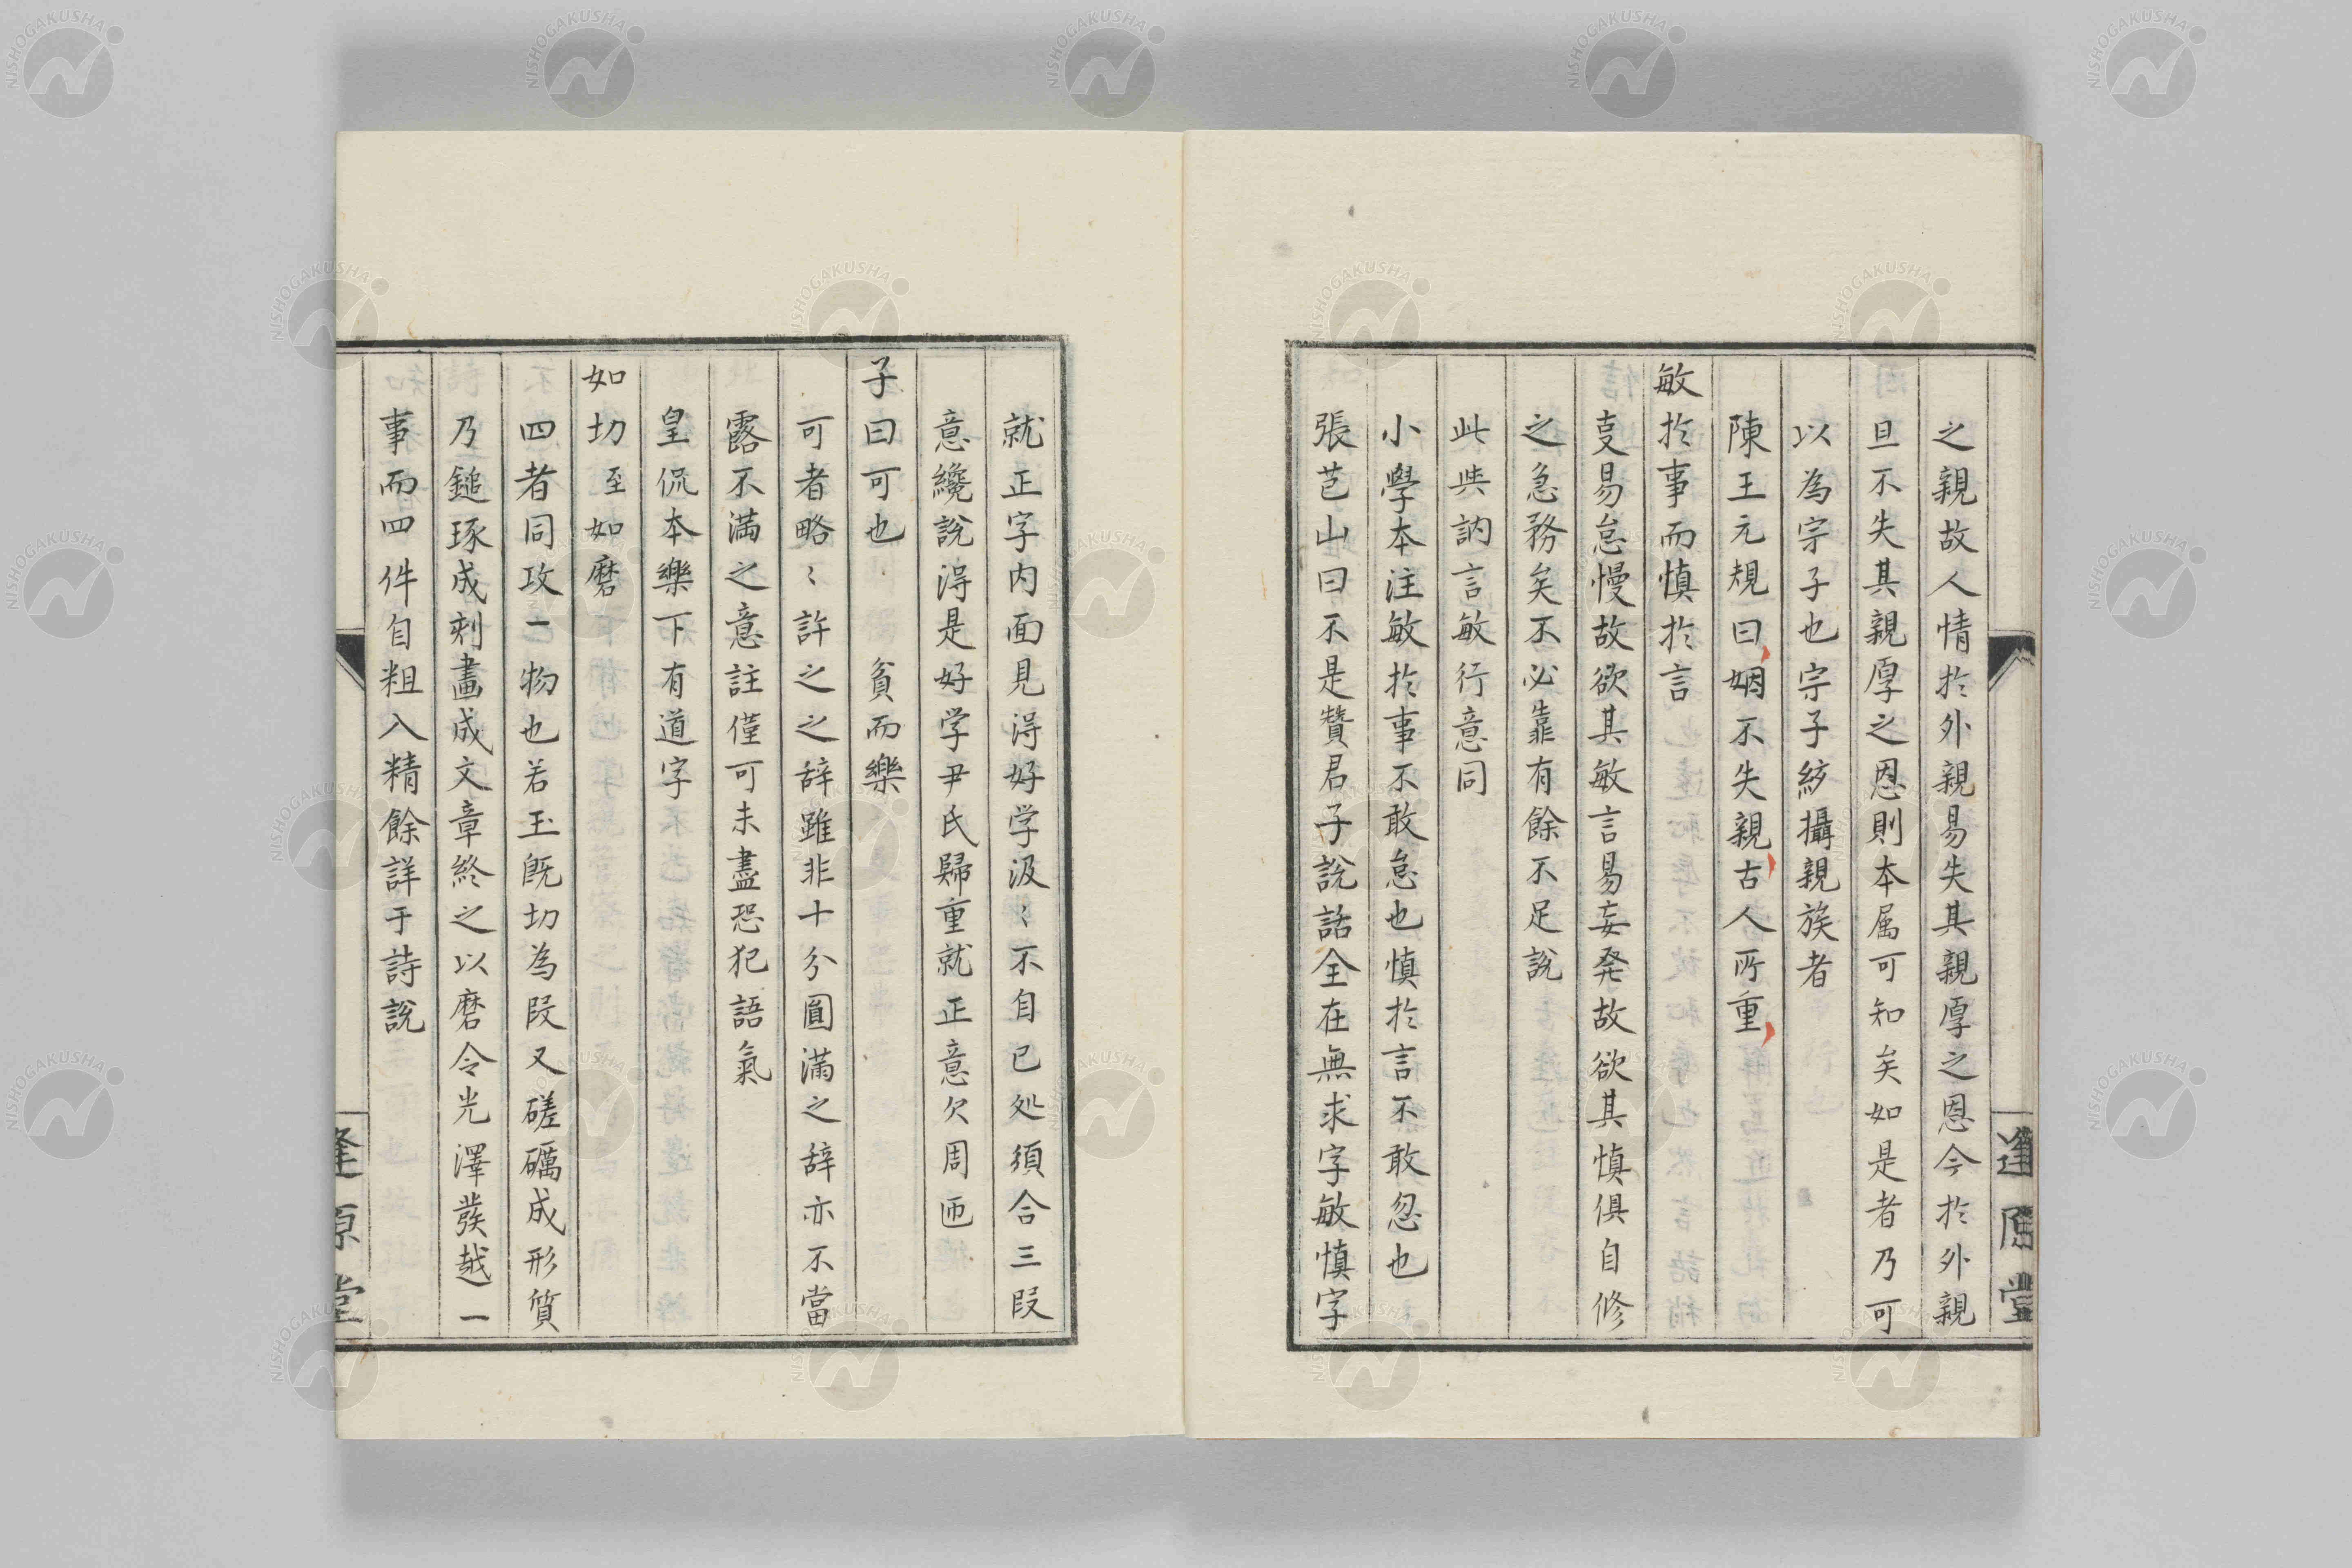 之親故人情於外親易失其親厚之恩今於外親
且不失其親厚之恩則本属可知矣如是者乃可
以為宗子也宗子紾攝親族者
陳王元規曰姻不失親古人所重
敏於事而慎於言
叓易怠慢故欲其敏言易妄発故欲其慎俱自修
之急務矣不必靠有餘不足說
此與訥言敏行意同
小學本注敏於事不敢怠也慎於言不敢忽也
張芑山曰不是贊君子說話全在無求字敏慎字
就正字内面見淂好学汲〻不自已処須合三段
意纔說淂是好学尹氏歸重就正意欠周匝
子曰可也 貧而樂
可者略〻許之之辞雖非十分圓滿之辞亦不當
露不滿之意註僅可未盡恐犯語氣
皇侃本樂下有道字
如切至如磨
四者同攻一物也若玉既切為段又磋礪成形質
乃鎚琢成刺畫成文章終之以磨令光澤發越一
事而四件自粗入精餘詳于詩說
逢原堂
NISHOGAKUSHA